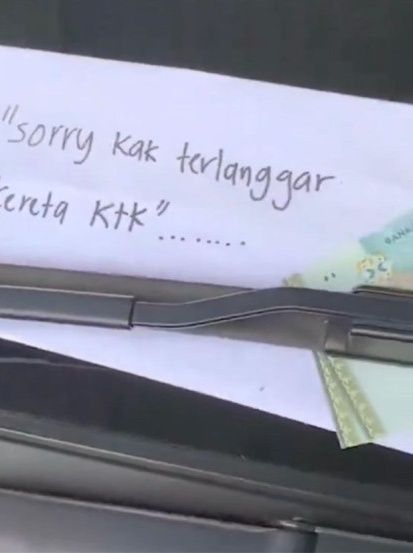 "sorry kak terlanggar
kereta ktk"........
BANK